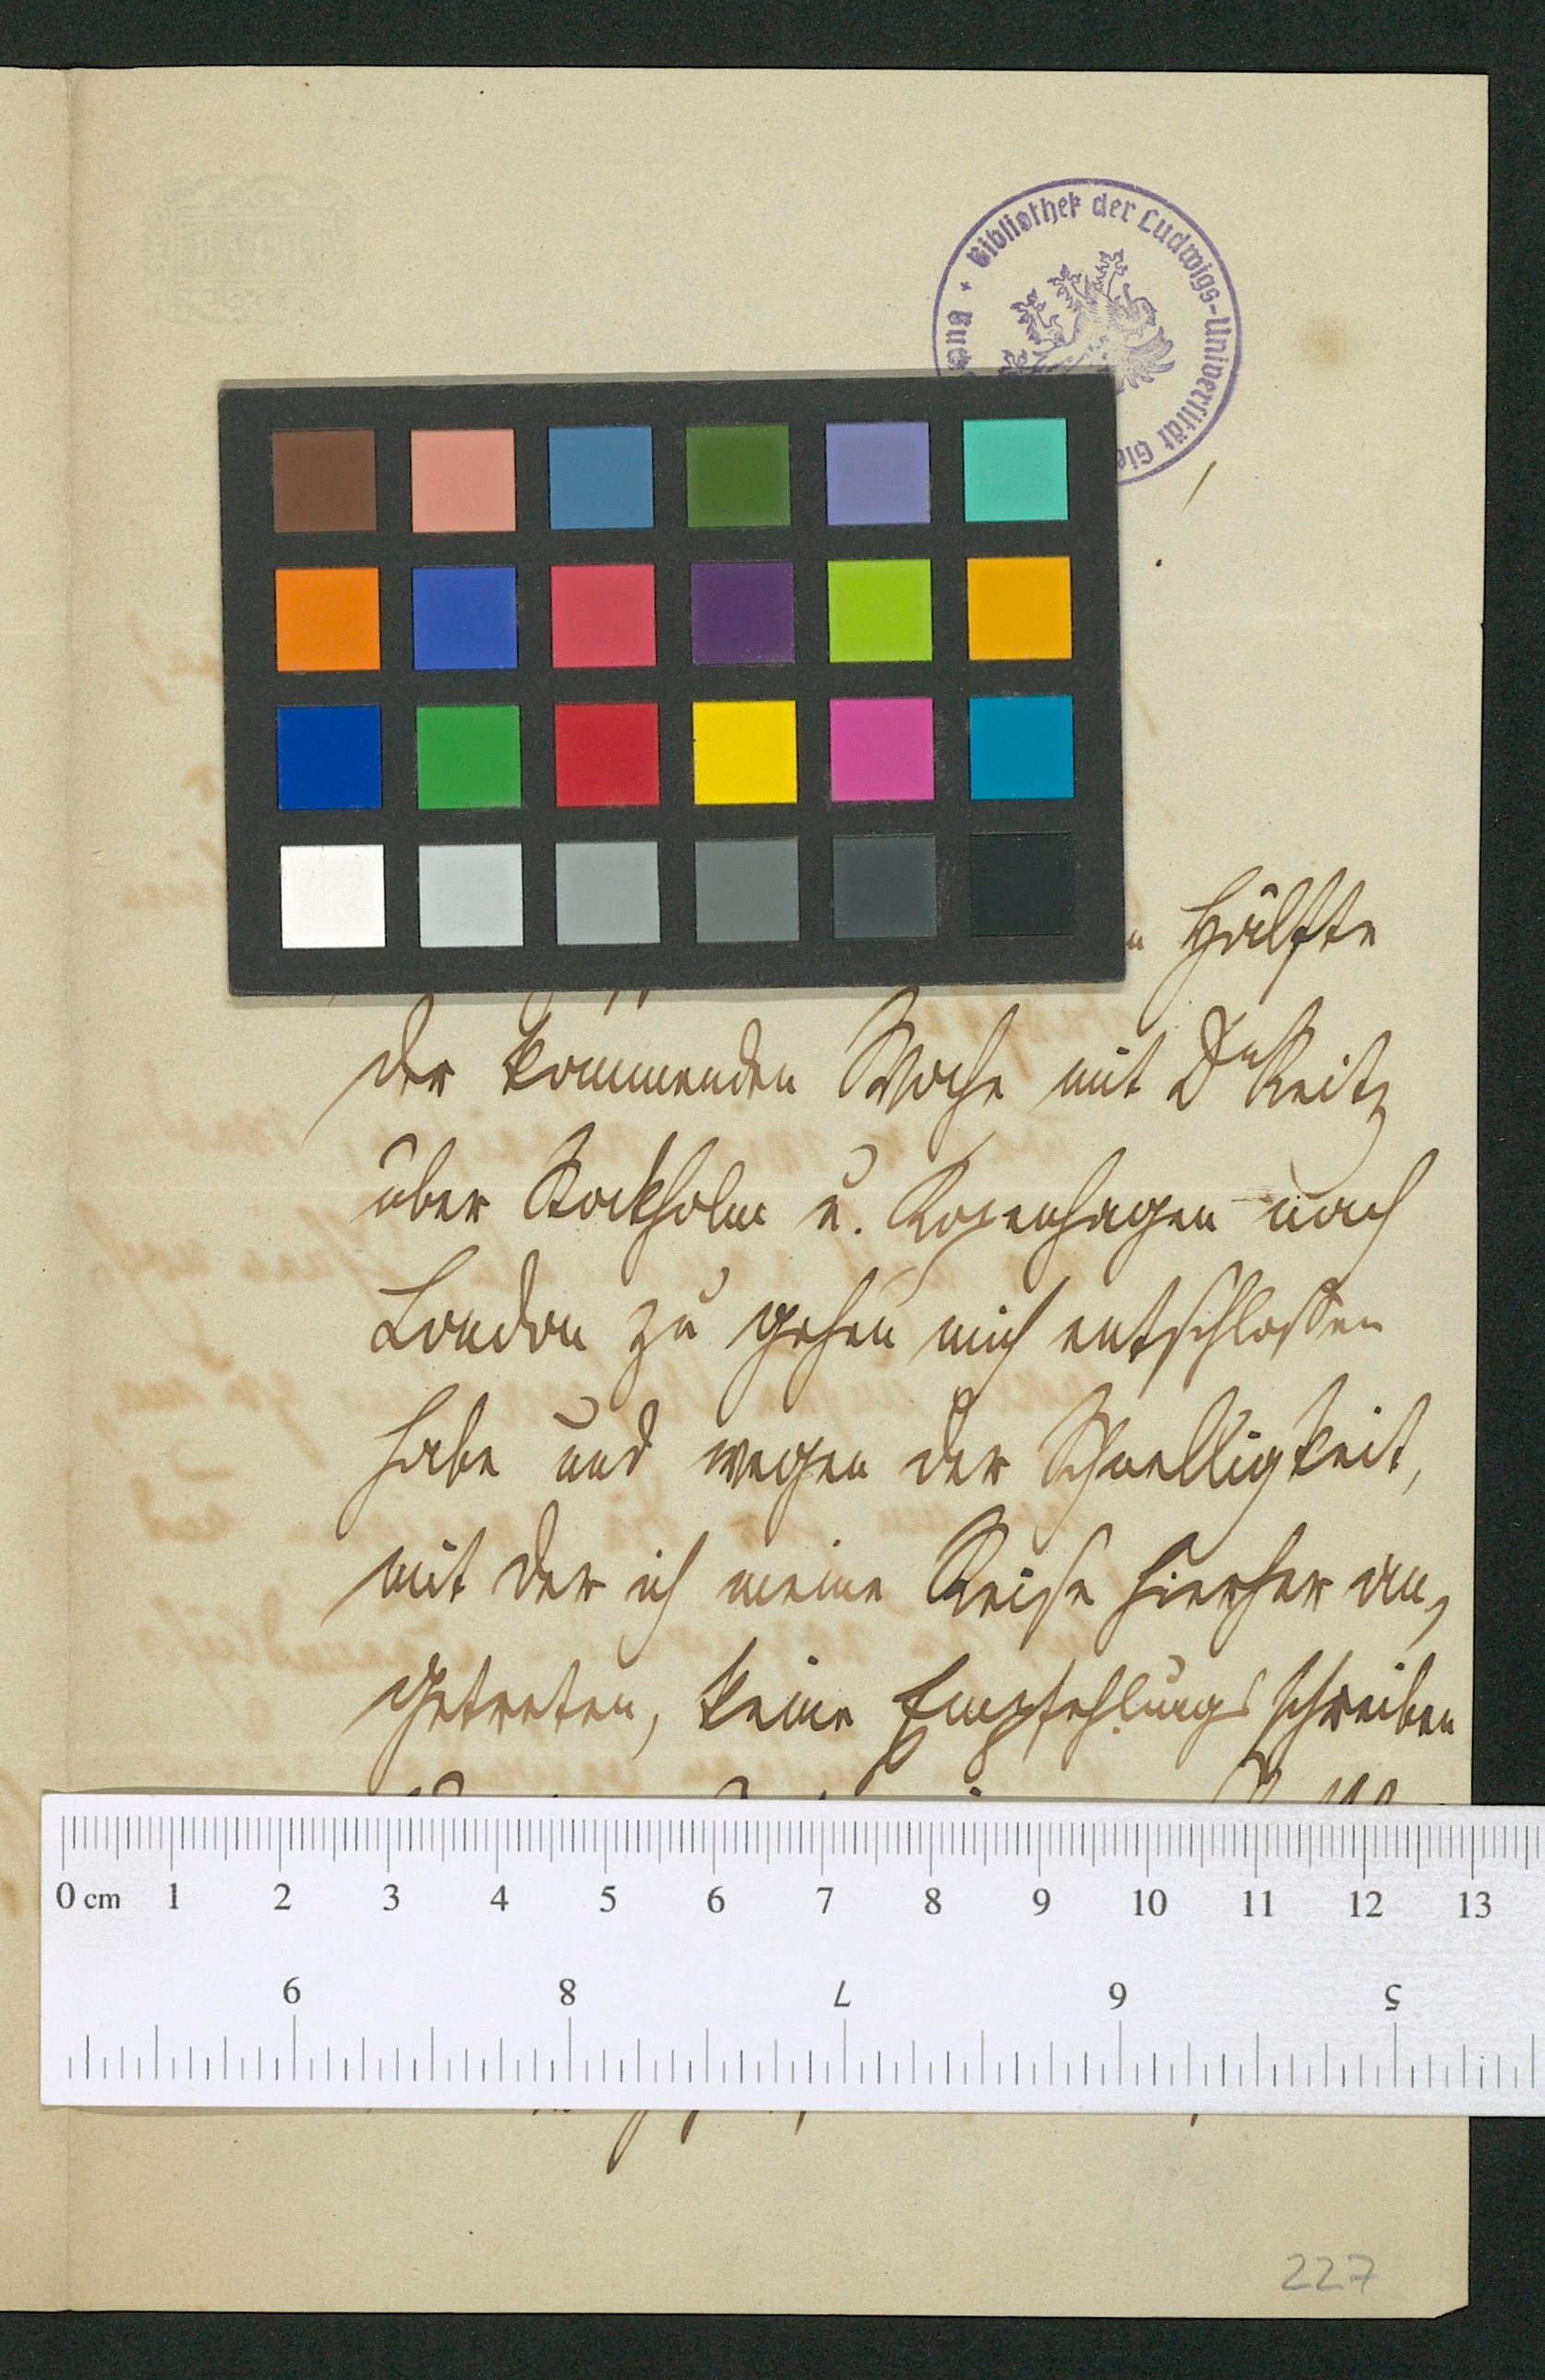 Bibliothek der Ludwigs-Universität Gie
Hälfte
der kommenden Woche mit Dr Reitz
über Stockholm u. Kopenhagen nach
London zu gehen mich entschlossen
habe und wegen der Schnelligkeit,
mit der ich meine Reise hierher an,
getreten, keine Empfehlungsschreiben
0 cm 1 2 3 4 5 6 7 8 9 10 11 12 13
9 8 7 6 5
227